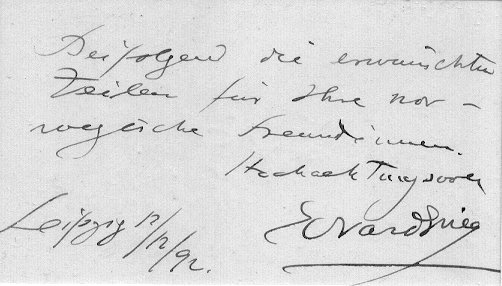 Beifolgend die erwünschten
Zeilen für Ihre nor-
wegische Freundinnen.
Hochachtungsvoll
Edvard Grieg
Leipzig 12/12/92.